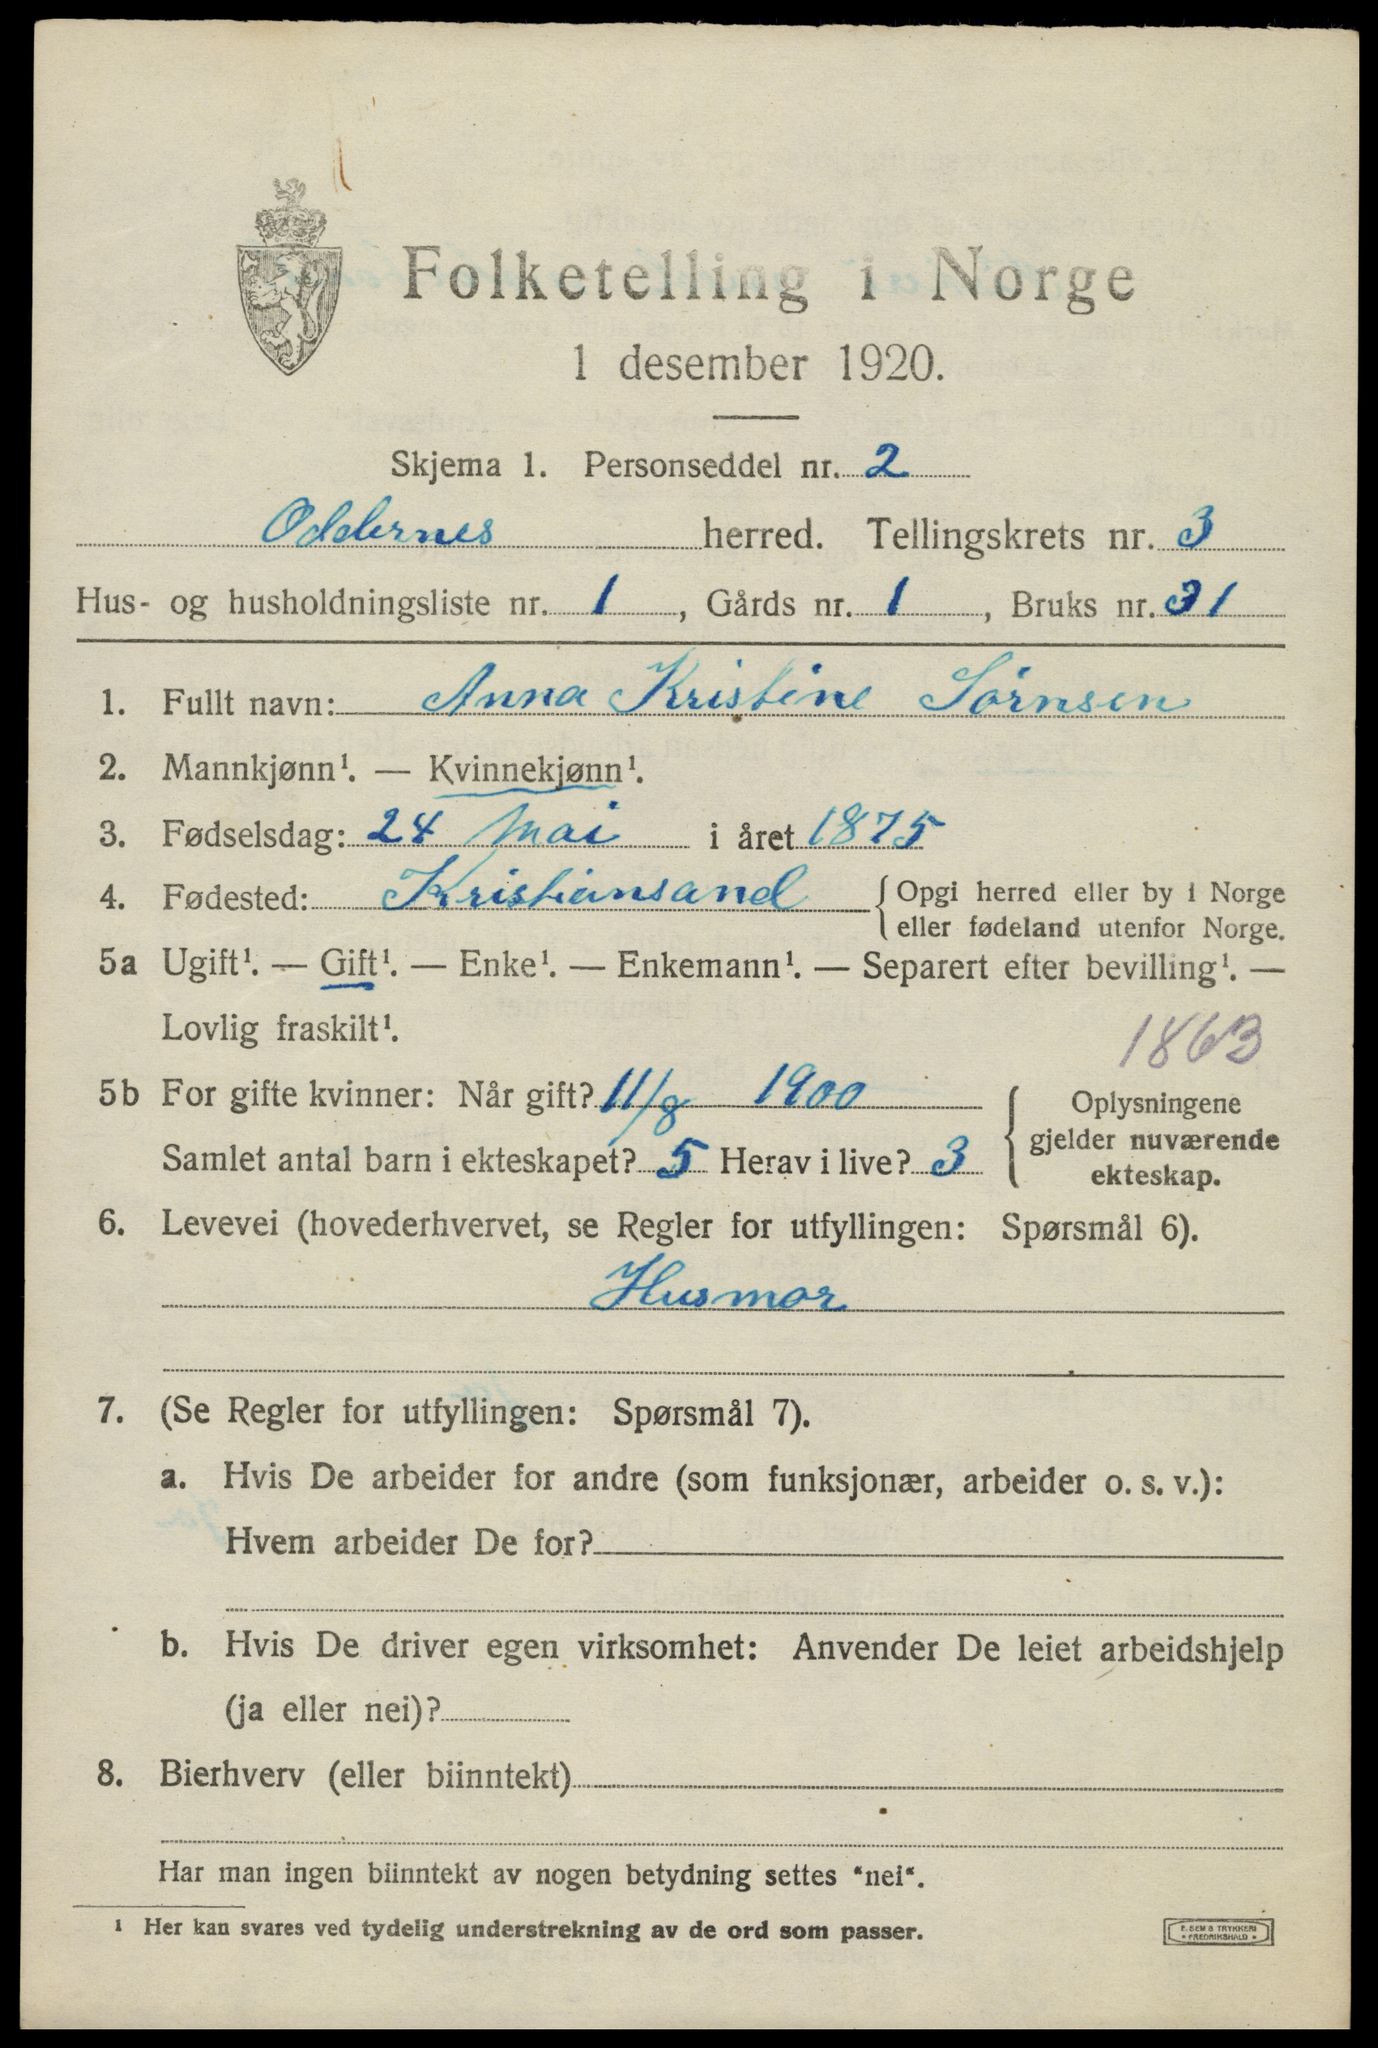 Folketelling i Norge
1 desember 1920.
Skjema 1. Personseddel nr. 2
Oddernes herred. Tellingskrets nr. 3
Hus- og husholdningsliste nr. 1, Gårds nr. 1, Bruks nr. 31
1. Fullt navn: Anna Kristine Sörnsen
2. Mannkjønn¹. — Kvinnekjønn¹.
3. Fødselsdag: 24 Mai i året 1875
4. Fødested: Kristiansand { Opgi herred eller by i Norge
eller fødeland utenfor Norge.
5a Ugift¹. — Gift¹. — Enke¹. — Enkemann¹. — Separert efter bevilling¹. —
Lovlig fraskilt¹.
1863
5b For gifte kvinner: Når gift? 11/8 1900
Samlet antal barn i ekteskapet? 5 Herav i live? 3
Oplysningene
gjelder nuværende
ekteskap.
6. Levevei (hovederhvervet, se Regler for utfyllingen: Spørsmål 6).
Husmor
7. (Se Regler for utfyllingen: Spørsmål 7).
a. Hvis De arbeider for andre (som funksjonær, arbeider o. s. v.):
Hvem arbeider De for?
b. Hvis De driver egen virksomhet: Anvender De leiet arbeidshjelp
(ja eller nei)?
8. Bierhverv (eller biinntekt)
Har man ingen biinntekt av nogen betydning settes "nei".
¹ Her kan svares ved tydelig understrekning av de ord som passer.
E. SEM'S TRYKKERI
FREDRIKSHALD